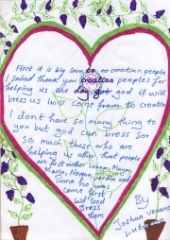 First it is big love to no croatian people
I Joined thank you croatian peoples for
helping us one day got god if will
bress us I will come from to croatia
I dont have so many thing to
you but god can bress so
so much these who are
helping us after that people
are just mother Ivana, Nena,
Maria, Nevena,
Tinna he was
come first
will God
bress
them
By
Joshua